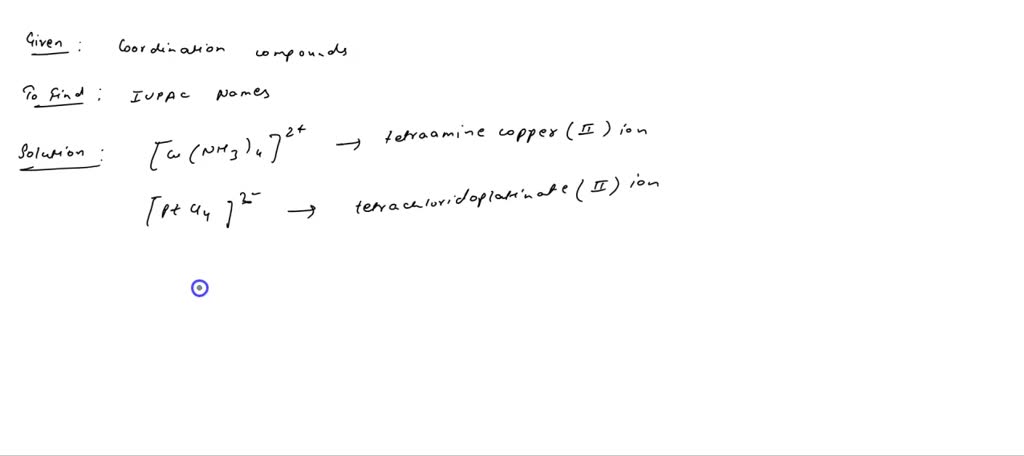 Given : Coordination compounds
To find : IUPAC Names
Solution : [Cu(NH3)4]2+ → tetraamine copper (II) ion
[PtCl4]2- → tetrachloridoplatinate (II) ion